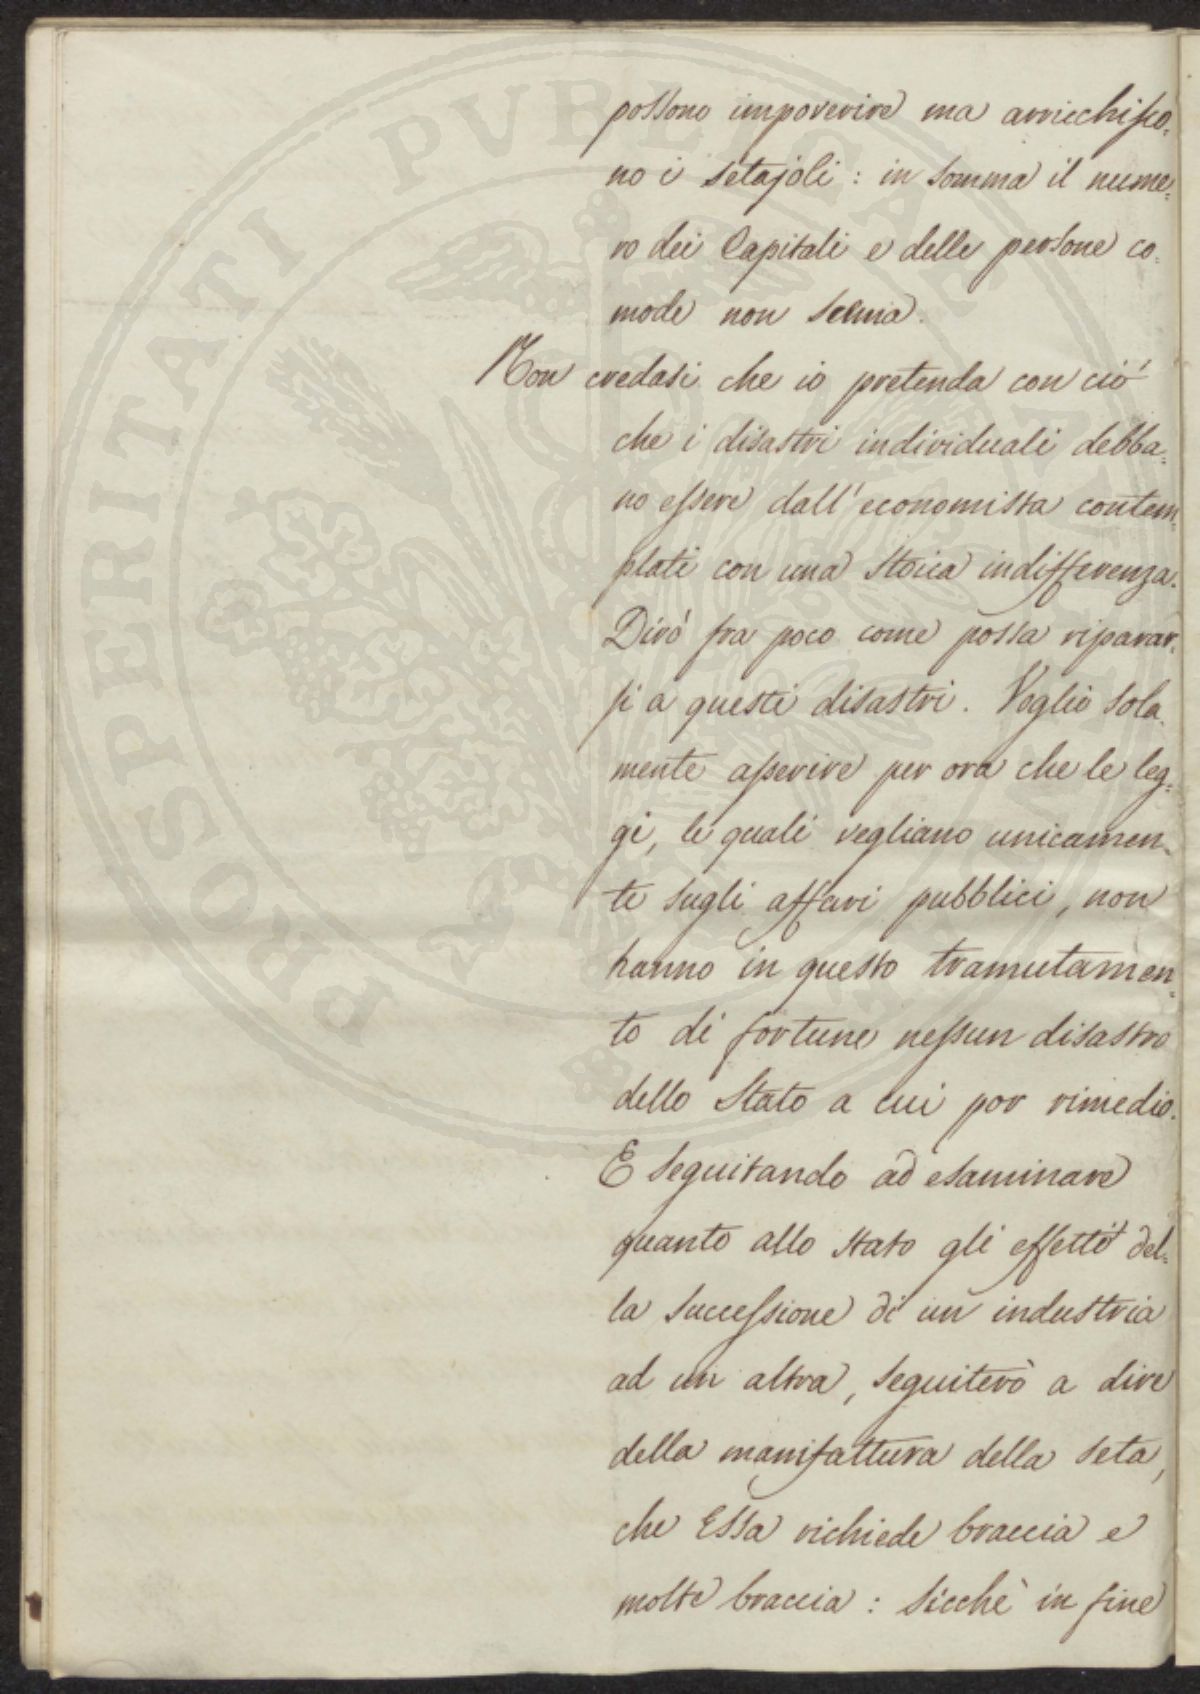 possono impoverire ma arricchisco=
no i setajoli : in somma il nume=
ro dei Capitali e delle persone co=
mode non scema.
Non credasi che io pretenda con ciò
che i disastri individuali debba=
no essere dall'economista contem=
plati con una stoica indifferenza.
Dirò fra poco come possa riparar=
si a questi disastri. Voglio sola=
mente asserire per ora che le leg=
gi, le quali vegliano unicamen=
te sugli affari pubblici, non
hanno in questo tramutamen=
to di fortune nessun disastro
dello Stato a cui por rimedio.
E seguitando ad esaminare
quanto allo stato gli effetti del=
la successione di un industria
ad un altra, seguiterò a dire
della manifattura della seta,
che Essa richiede braccia e
molte braccia : sicchè in fine
PROSPERITATI PVBLICAE AVGENDAE